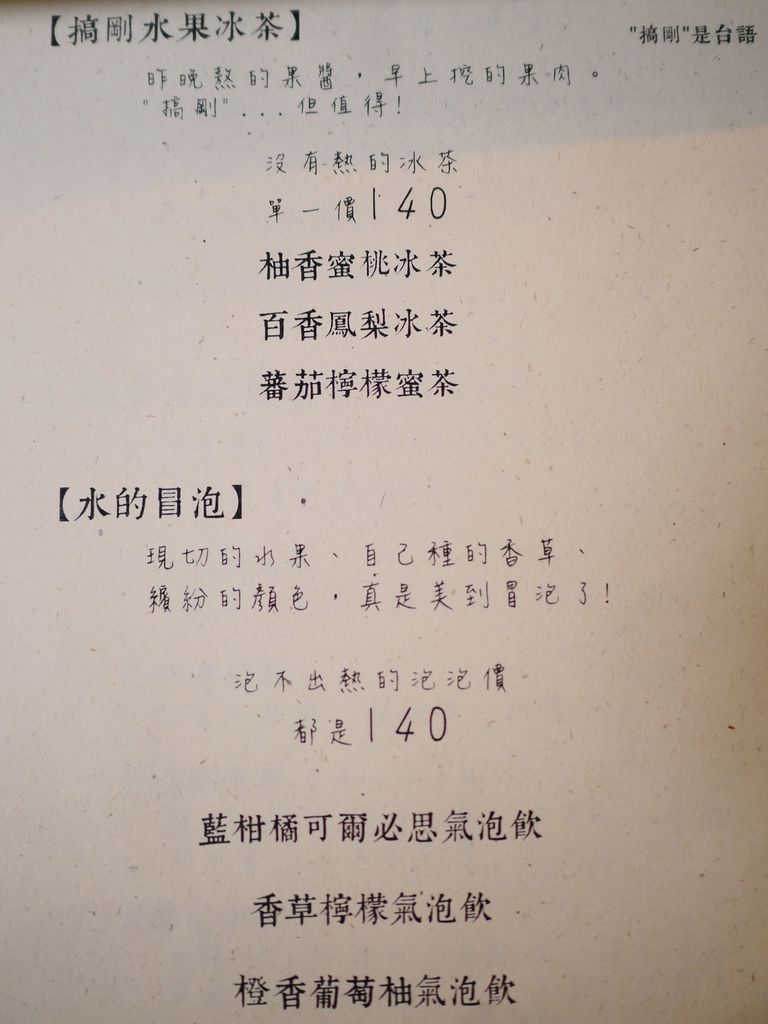 【搞剛水果冰茶】 "搞剛"是台語
昨晚熬的果醬，早上挖的果肉。
"搞剛"...但值得!
沒有熱的冰茶
單一價140
柚香蜜桃冰茶
百香鳳梨冰茶
蕃茄檸檬蜜茶
【水的冒泡】
現切的水果、自己種的香草、
繽紛的顏色，真是美到冒泡了!
泡不出熱的泡泡價
都是140
藍柑橘可爾必思氣泡飲
香草檸檬氣泡飲
橙香葡萄柚氣泡飲